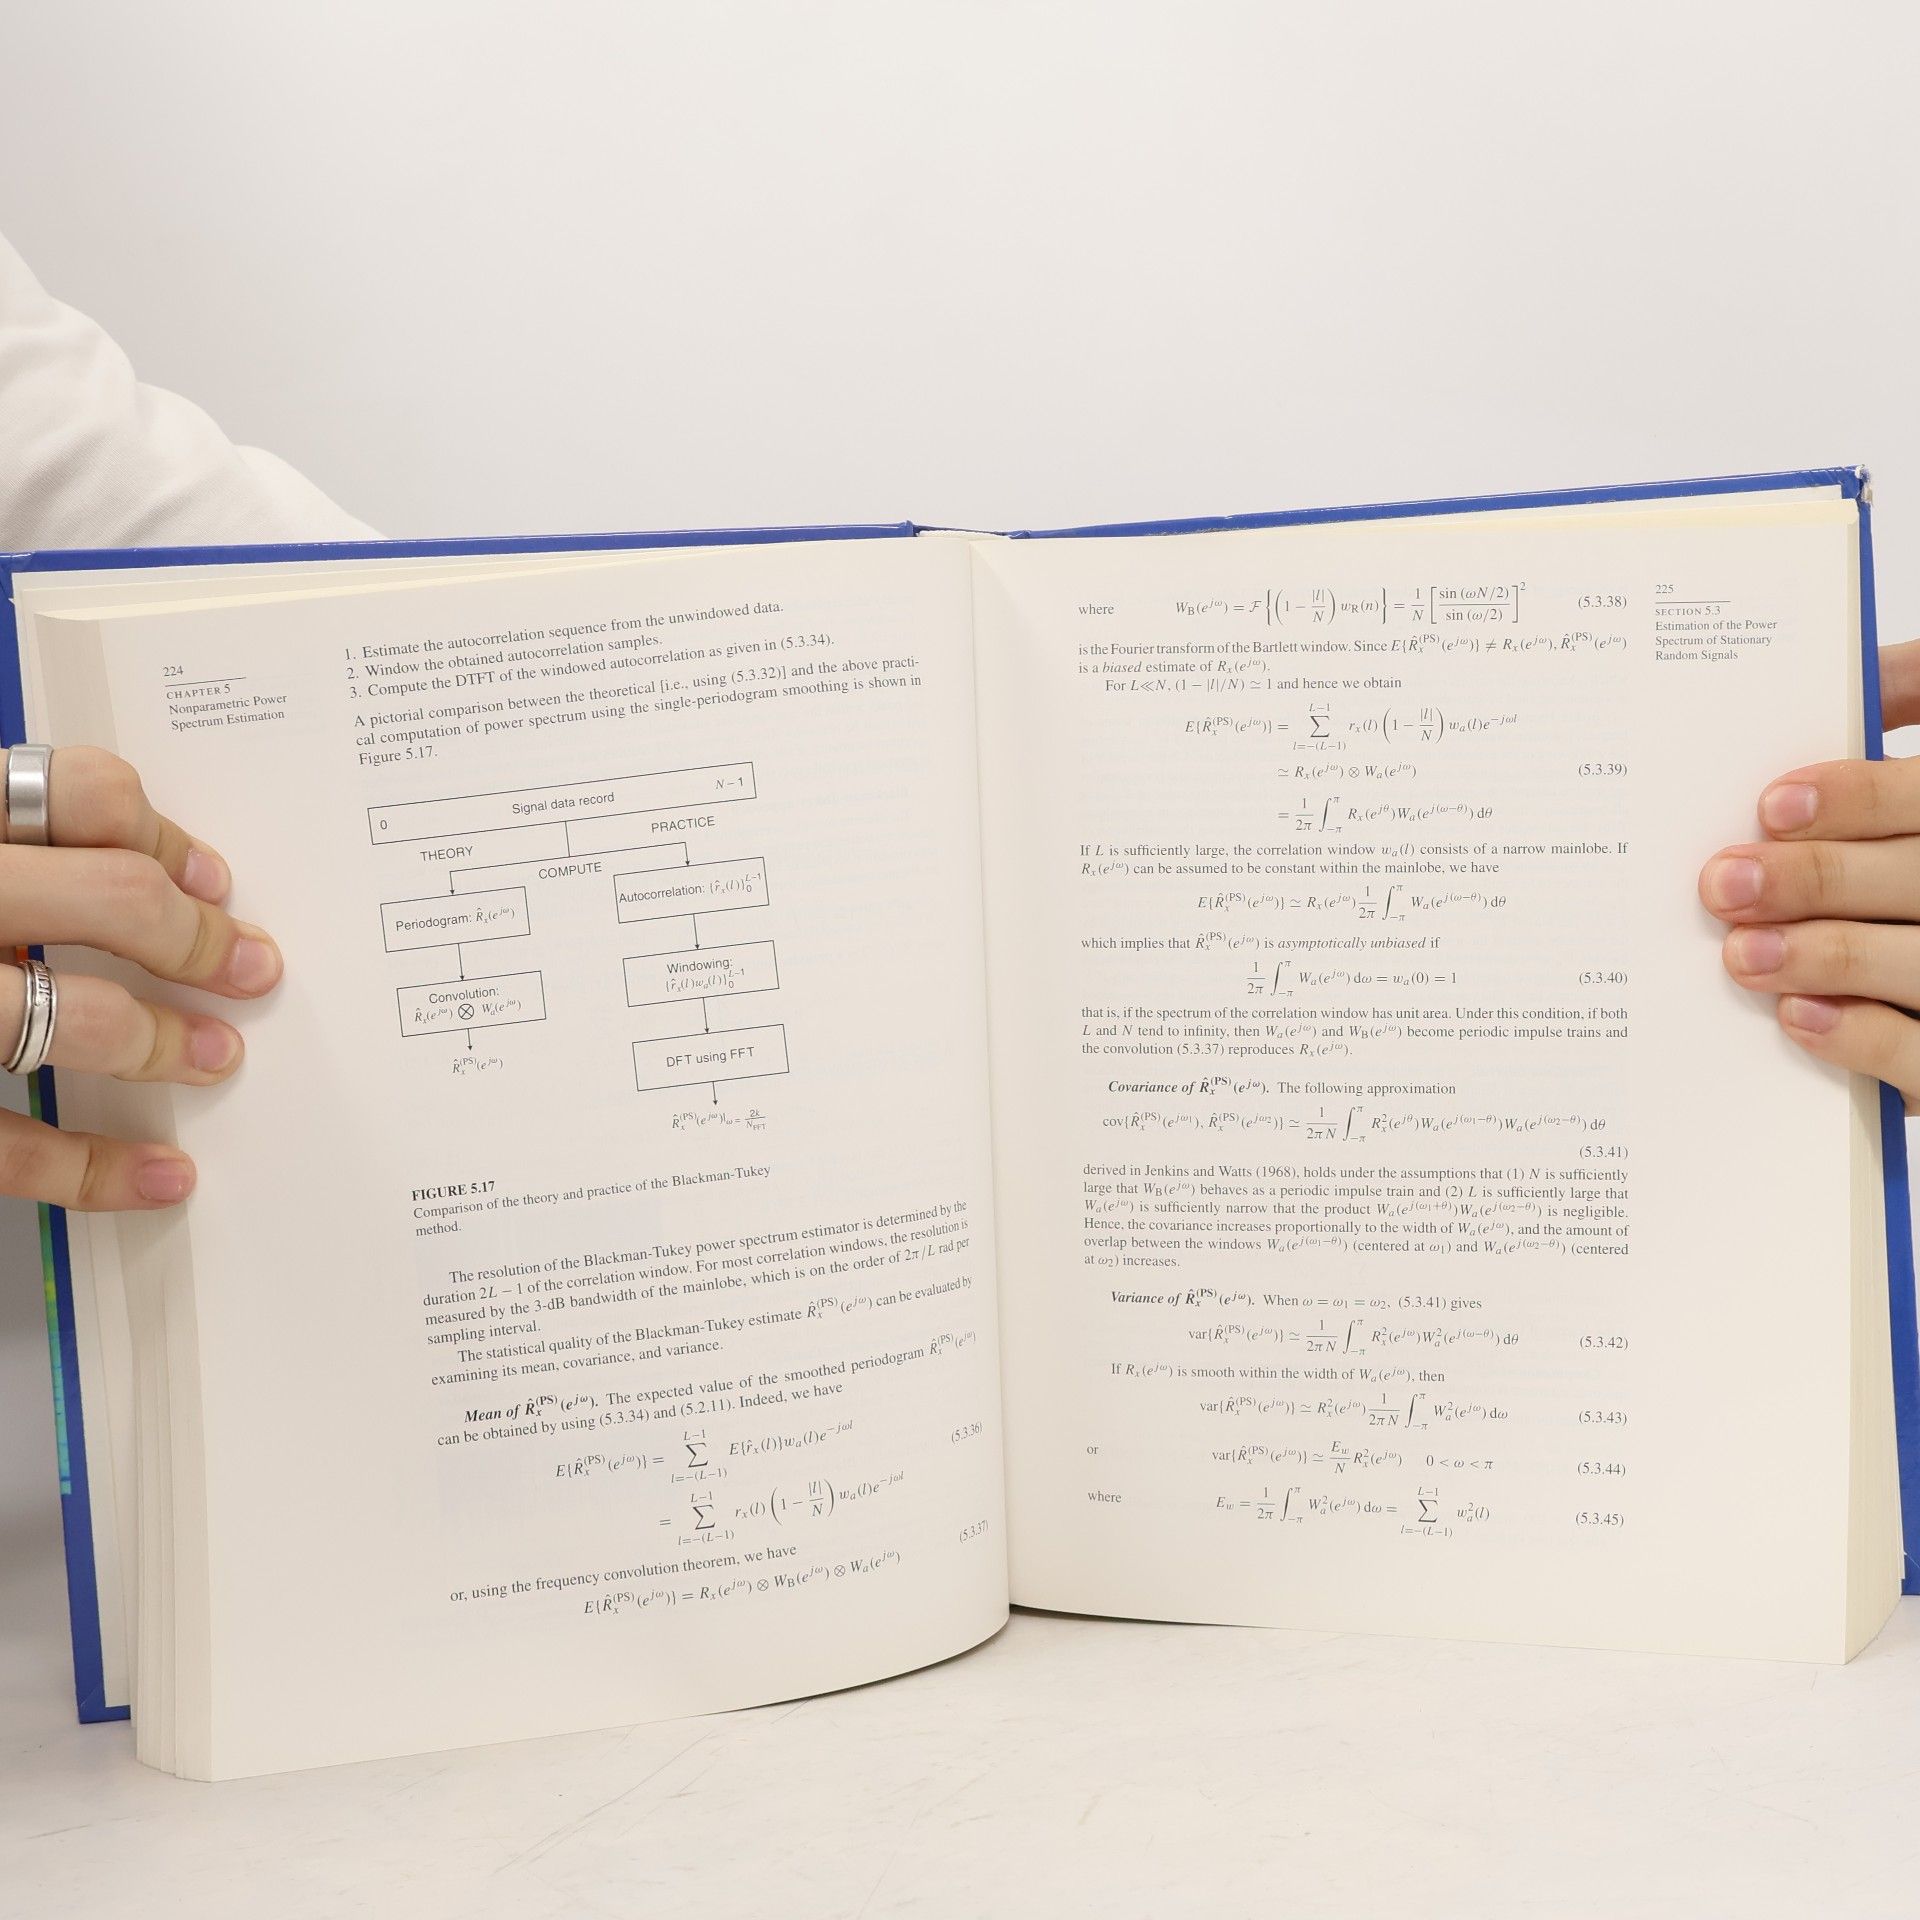 224
CHAPTER 5
Nonparametric Power
Spectrum Estimation
1. Estimate the autocorrelation sequence from the unwindowed data.
2. Window the obtained autocorrelation samples.
3. Compute the DTFT of the windowed autocorrelation as given in (5.3.34).
A pictorial comparison between the theoretical [i.e., using (5.3.32)] and the above practi-
cal computation of power spectrum using the single-periodogram smoothing is shown in
Figure 5.17.
0 Signal data record N − 1
THEORY PRACTICE
COMPUTE
Periodogram: R̂ₓ(e^{jω})
Autocorrelation: {r̂ₓ(l)}₀^{L−1}
Convolution:
R̂ₓ(e^{jω}) ⊗ Wₐ(e^{jω})
Windowing:
{r̂ₓ(l)wₐ(l)}₀^{L−1}
R̂ₓ^{(PS)}(e^{jω})
DFT using FFT
R̂ₓ^{(PS)}(e^{jω})|_{ω = 2k/N_{FFT}}
FIGURE 5.17
Comparison of the theory and practice of the Blackman-Tukey
method.
The resolution of the Blackman-Tukey power spectrum estimator is determined by the
duration 2L − 1 of the correlation window. For most correlation windows, the resolution is
measured by the 3-dB bandwidth of the mainlobe, which is on the order of 2π/L rad per
sampling interval.
The statistical quality of the Blackman-Tukey estimate R̂ₓ^{(PS)}(e^{jω}) can be evaluated by
examining its mean, covariance, and variance.
Mean of R̂ₓ^{(PS)}(e^{jω}). The expected value of the smoothed periodogram R̂ₓ^{(PS)}(e^{jω})
can be obtained by using (5.3.34) and (5.2.11). Indeed, we have
E{R̂ₓ^{(PS)}(e^{jω})} = ∑_{l=−(L−1)}^{L−1} E{r̂ₓ(l)}wₐ(l)e^{−jωl} (5.3.36)
= ∑_{l=−(L−1)}^{L−1} rₓ(l) (1 − |l|/N) wₐ(l)e^{−jωl}
or, using the frequency convolution theorem, we have
E{R̂ₓ^{(PS)}(e^{jω})} = Rₓ(e^{jω}) ⊗ W_B(e^{jω}) ⊗ Wₐ(e^{jω}) (5.3.37)
225
SECTION 5.3
Estimation of the Power
Spectrum of Stationary
Random Signals
where W_B(e^{jω}) = F{(1 − |l|/N) w_R(n)} = 1/N [sin (ωN/2) / sin (ω/2)]² (5.3.38)
is the Fourier transform of the Bartlett window. Since E{R̂ₓ^{(PS)}(e^{jω})} ≠ Rₓ(e^{jω}), R̂ₓ^{(PS)}(e^{jω})
is a biased estimate of Rₓ(e^{jω}).
For L ≪ N, (1 − |l|/N) ≃ 1 and hence we obtain
E{R̂ₓ^{(PS)}(e^{jω})} = ∑_{l=−(L−1)}^{L−1} rₓ(l) (1 − |l|/N) wₐ(l)e^{−jωl}
≃ Rₓ(e^{jω}) ⊗ Wₐ(e^{jω}) (5.3.39)
= 1/2π ∫_{−π}^{π} Rₓ(e^{jθ})Wₐ(e^{j(ω−θ)}) dθ
If L is sufficiently large, the correlation window wₐ(l) consists of a narrow mainlobe. If
Rₓ(e^{jω}) can be assumed to be constant within the mainlobe, we have
E{R̂ₓ^{(PS)}(e^{jω})} ≃ Rₓ(e^{jω}) 1/2π ∫_{−π}^{π} Wₐ(e^{j(ω−θ)}) dθ
which implies that R̂ₓ^{(PS)}(e^{jω}) is asymptotically unbiased if
1/2π ∫_{−π}^{π} Wₐ(e^{jω}) dω = wₐ(0) = 1 (5.3.40)
that is, if the spectrum of the correlation window has unit area. Under this condition, if both
L and N tend to infinity, then Wₐ(e^{jω}) and W_B(e^{jω}) become periodic impulse trains and
the convolution (5.3.37) reproduces Rₓ(e^{jω}).
Covariance of R̂ₓ^{(PS)}(e^{jω}). The following approximation
cov{R̂ₓ^{(PS)}(e^{jω₁}), R̂ₓ^{(PS)}(e^{jω₂})} ≃ 1/2πN ∫_{−π}^{π} Rₓ²(e^{jθ})Wₐ(e^{j(ω₁−θ)})Wₐ(e^{j(ω₂−θ)}) dθ
(5.3.41)
derived in Jenkins and Watts (1968), holds under the assumptions that (1) N is sufficiently
large that W_B(e^{jω}) behaves as a periodic impulse train and (2) L is sufficiently large that
Wₐ(e^{jω}) is sufficiently narrow that the product Wₐ(e^{j(ω₁+θ)})Wₐ(e^{j(ω₂−θ)}) is negligible.
Hence, the covariance increases proportionally to the width of Wₐ(e^{jω}), and the amount of
overlap between the windows Wₐ(e^{j(ω₁−θ)}) (centered at ω₁) and Wₐ(e^{j(ω₂−θ)}) (centered
at ω₂) increases.
Variance of R̂ₓ^{(PS)}(e^{jω}). When ω = ω₁ = ω₂, (5.3.41) gives
var{R̂ₓ^{(PS)}(e^{jω})} ≃ 1/2πN ∫_{−π}^{π} Rₓ²(e^{jω})Wₐ²(e^{j(ω−θ)}) dθ (5.3.42)
If Rₓ(e^{jω}) is smooth within the width of Wₐ(e^{jω}), then
var{R̂ₓ^{(PS)}(e^{jω})} ≃ Rₓ²(e^{jω}) 1/2πN ∫_{−π}^{π} Wₐ²(e^{jω}) dω (5.3.43)
or var{R̂ₓ^{(PS)}(e^{jω})} ≃ E_w/N Rₓ²(e^{jω}) 0 < ω < π (5.3.44)
where E_w = 1/2π ∫_{−π}^{π} Wₐ²(e^{jω}) dω = ∑_{l=−(L−1)}^{L−1} wₐ²(l) (5.3.45)